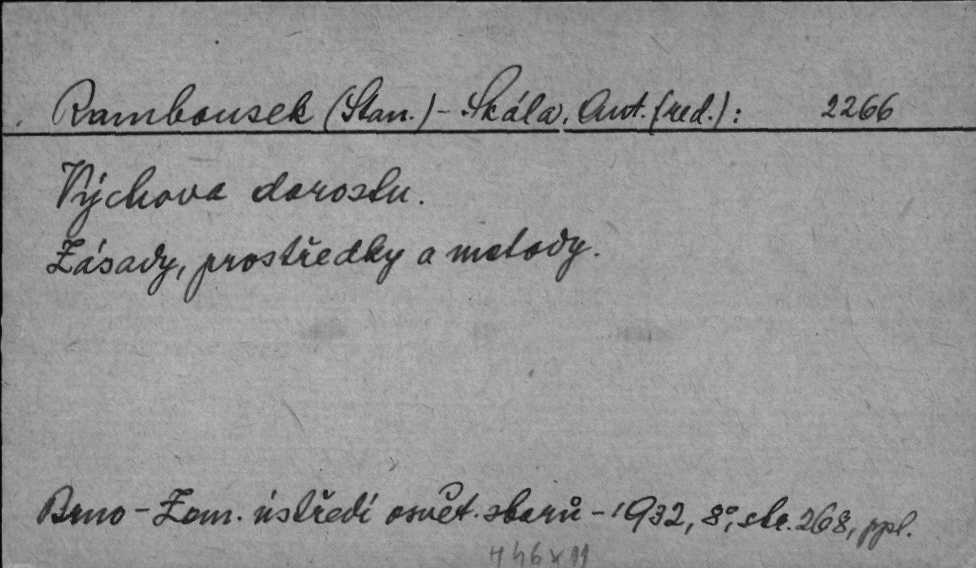 Rambousek (Stan.) - Skála, Ant. (red.): 2266
Výchova dorostu.
Zásady, prostředky a metody.
Brno - Zem. ústředí osvět. sborů - 1932, 8°, str. 268, ppl.